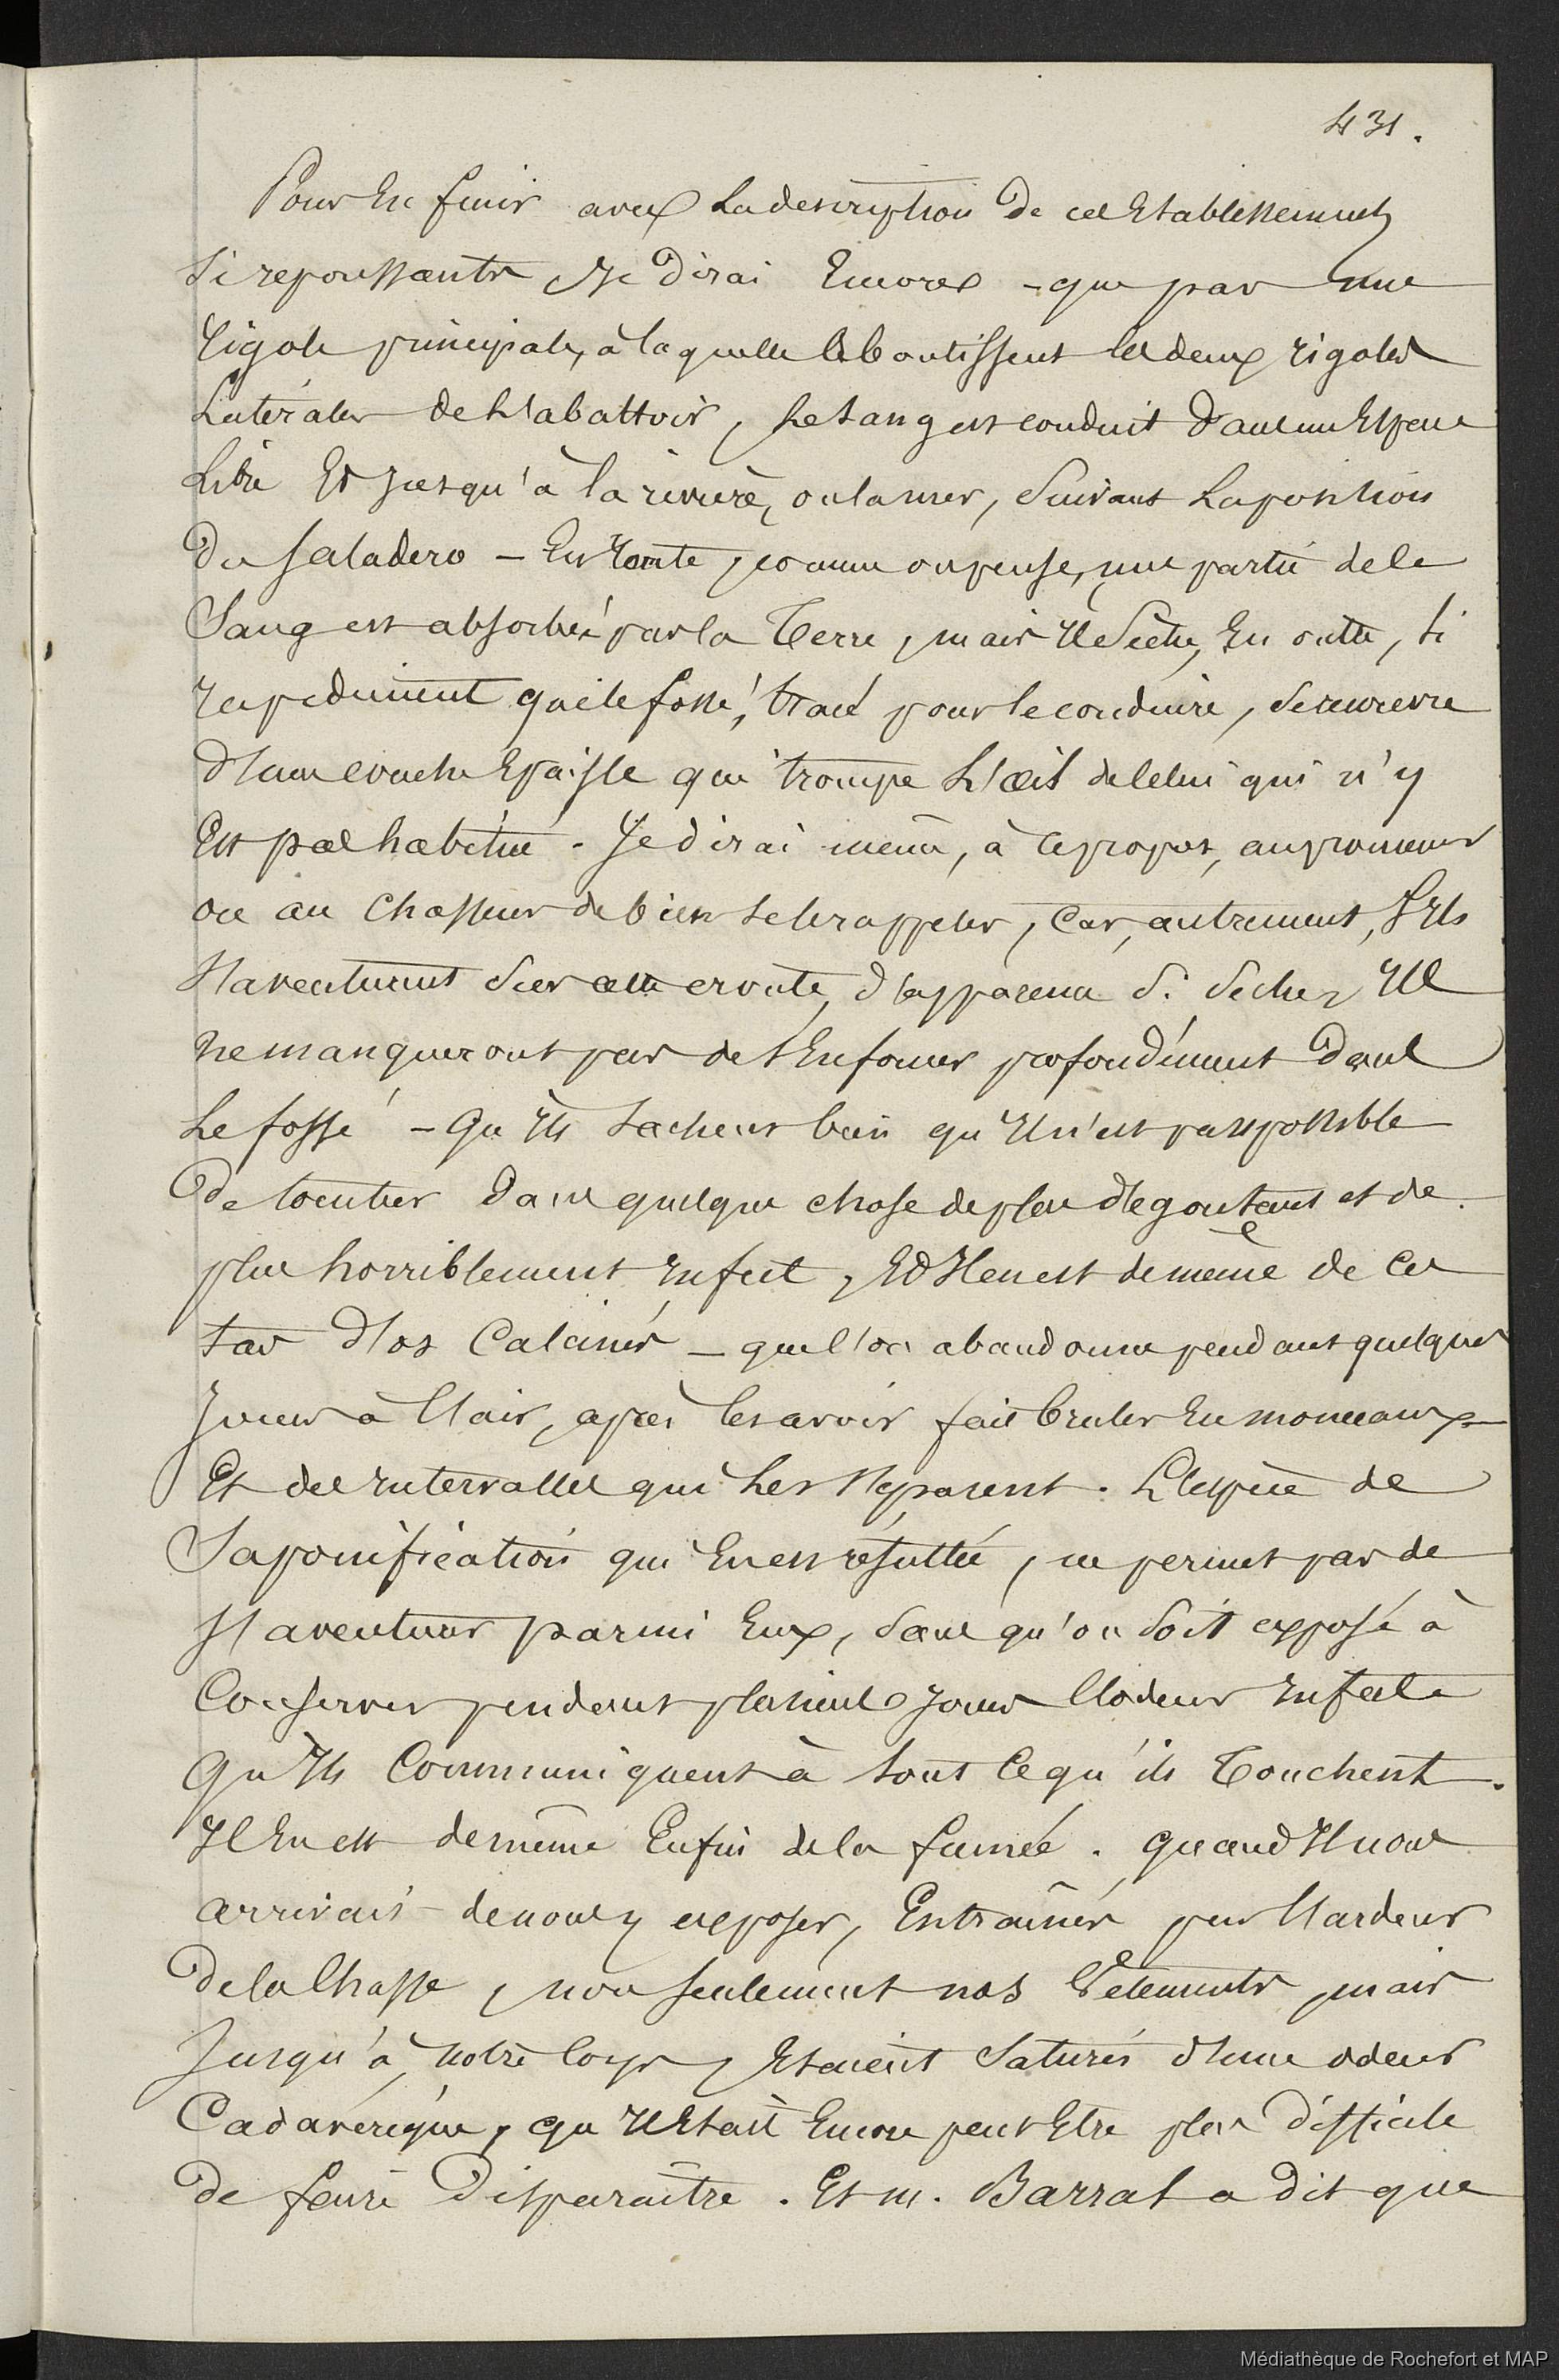 431.
Pour En finir avec La description De cet Etablissement
si repoussante, Je Dirai Encore - que par une
rigole principale, à laquelle Aboutissent les deux rigoles
Latérales de L'abattoir, Le sang est conduit Dans un Espace
Libre Et jusqu'à la rivière, ou la mer, Suivant La position
Du Saladero - En route, comme on pense, une partie de ce
Sang est absorbée par la Terre, mais Il Sèche, En outre, si
rapidement que le fossé, tracé pour le conduire, se recouvre
d'une croute Epaisse qui trompe L'œil de Celui qui n'y
Est pas habitué. Je dirai même, à Ce propos, au promeneur
ou au Chasseur de bien se le rappeler, Car, autrement, S'Ils
S'aventurent Sur cette croute, d'apparence Si Sèche, Ils
ne manqueront pas de s'Enfoncer profondément Dans
Le fossé - Qu'Ils sachent bien qu'Il n'est pas possible
De tomber Dans quelque chose de plus dégoutant et de
plus horriblement Infect, Et Il en est de même de Ces
tas d'os Calcinés - que l'on abandonne pendant quelques
Jours à l'air, après les avoir fait bruler En monceaux
Et des Intervalles qui Les Séparent. L'Espèce de
Saponification qui En est résultée, ne permet pas de
S'aventurer parmi Eux, Sans qu'on Soit exposé à
Conserver pendant plusieurs Jours l'odeur Infecte
Qu'Ils Communiquent à tout Ce qu'ils Touchent.
Il En est de même Enfin de la fumée. Quand Il nous
arrivait de nous y exposer, Entraînés par l'ardeur
De la Chasse, non seulement nos Vêtements, mais
Jusqu'à notre corps, Etaient Saturés d'une odeur
Cadavérique, qu'Il Etait Encore peut Etre plus Difficile
De faire Disparaître. Et M. Barral a Dit que
Médiathèque de Rochefort et MAP